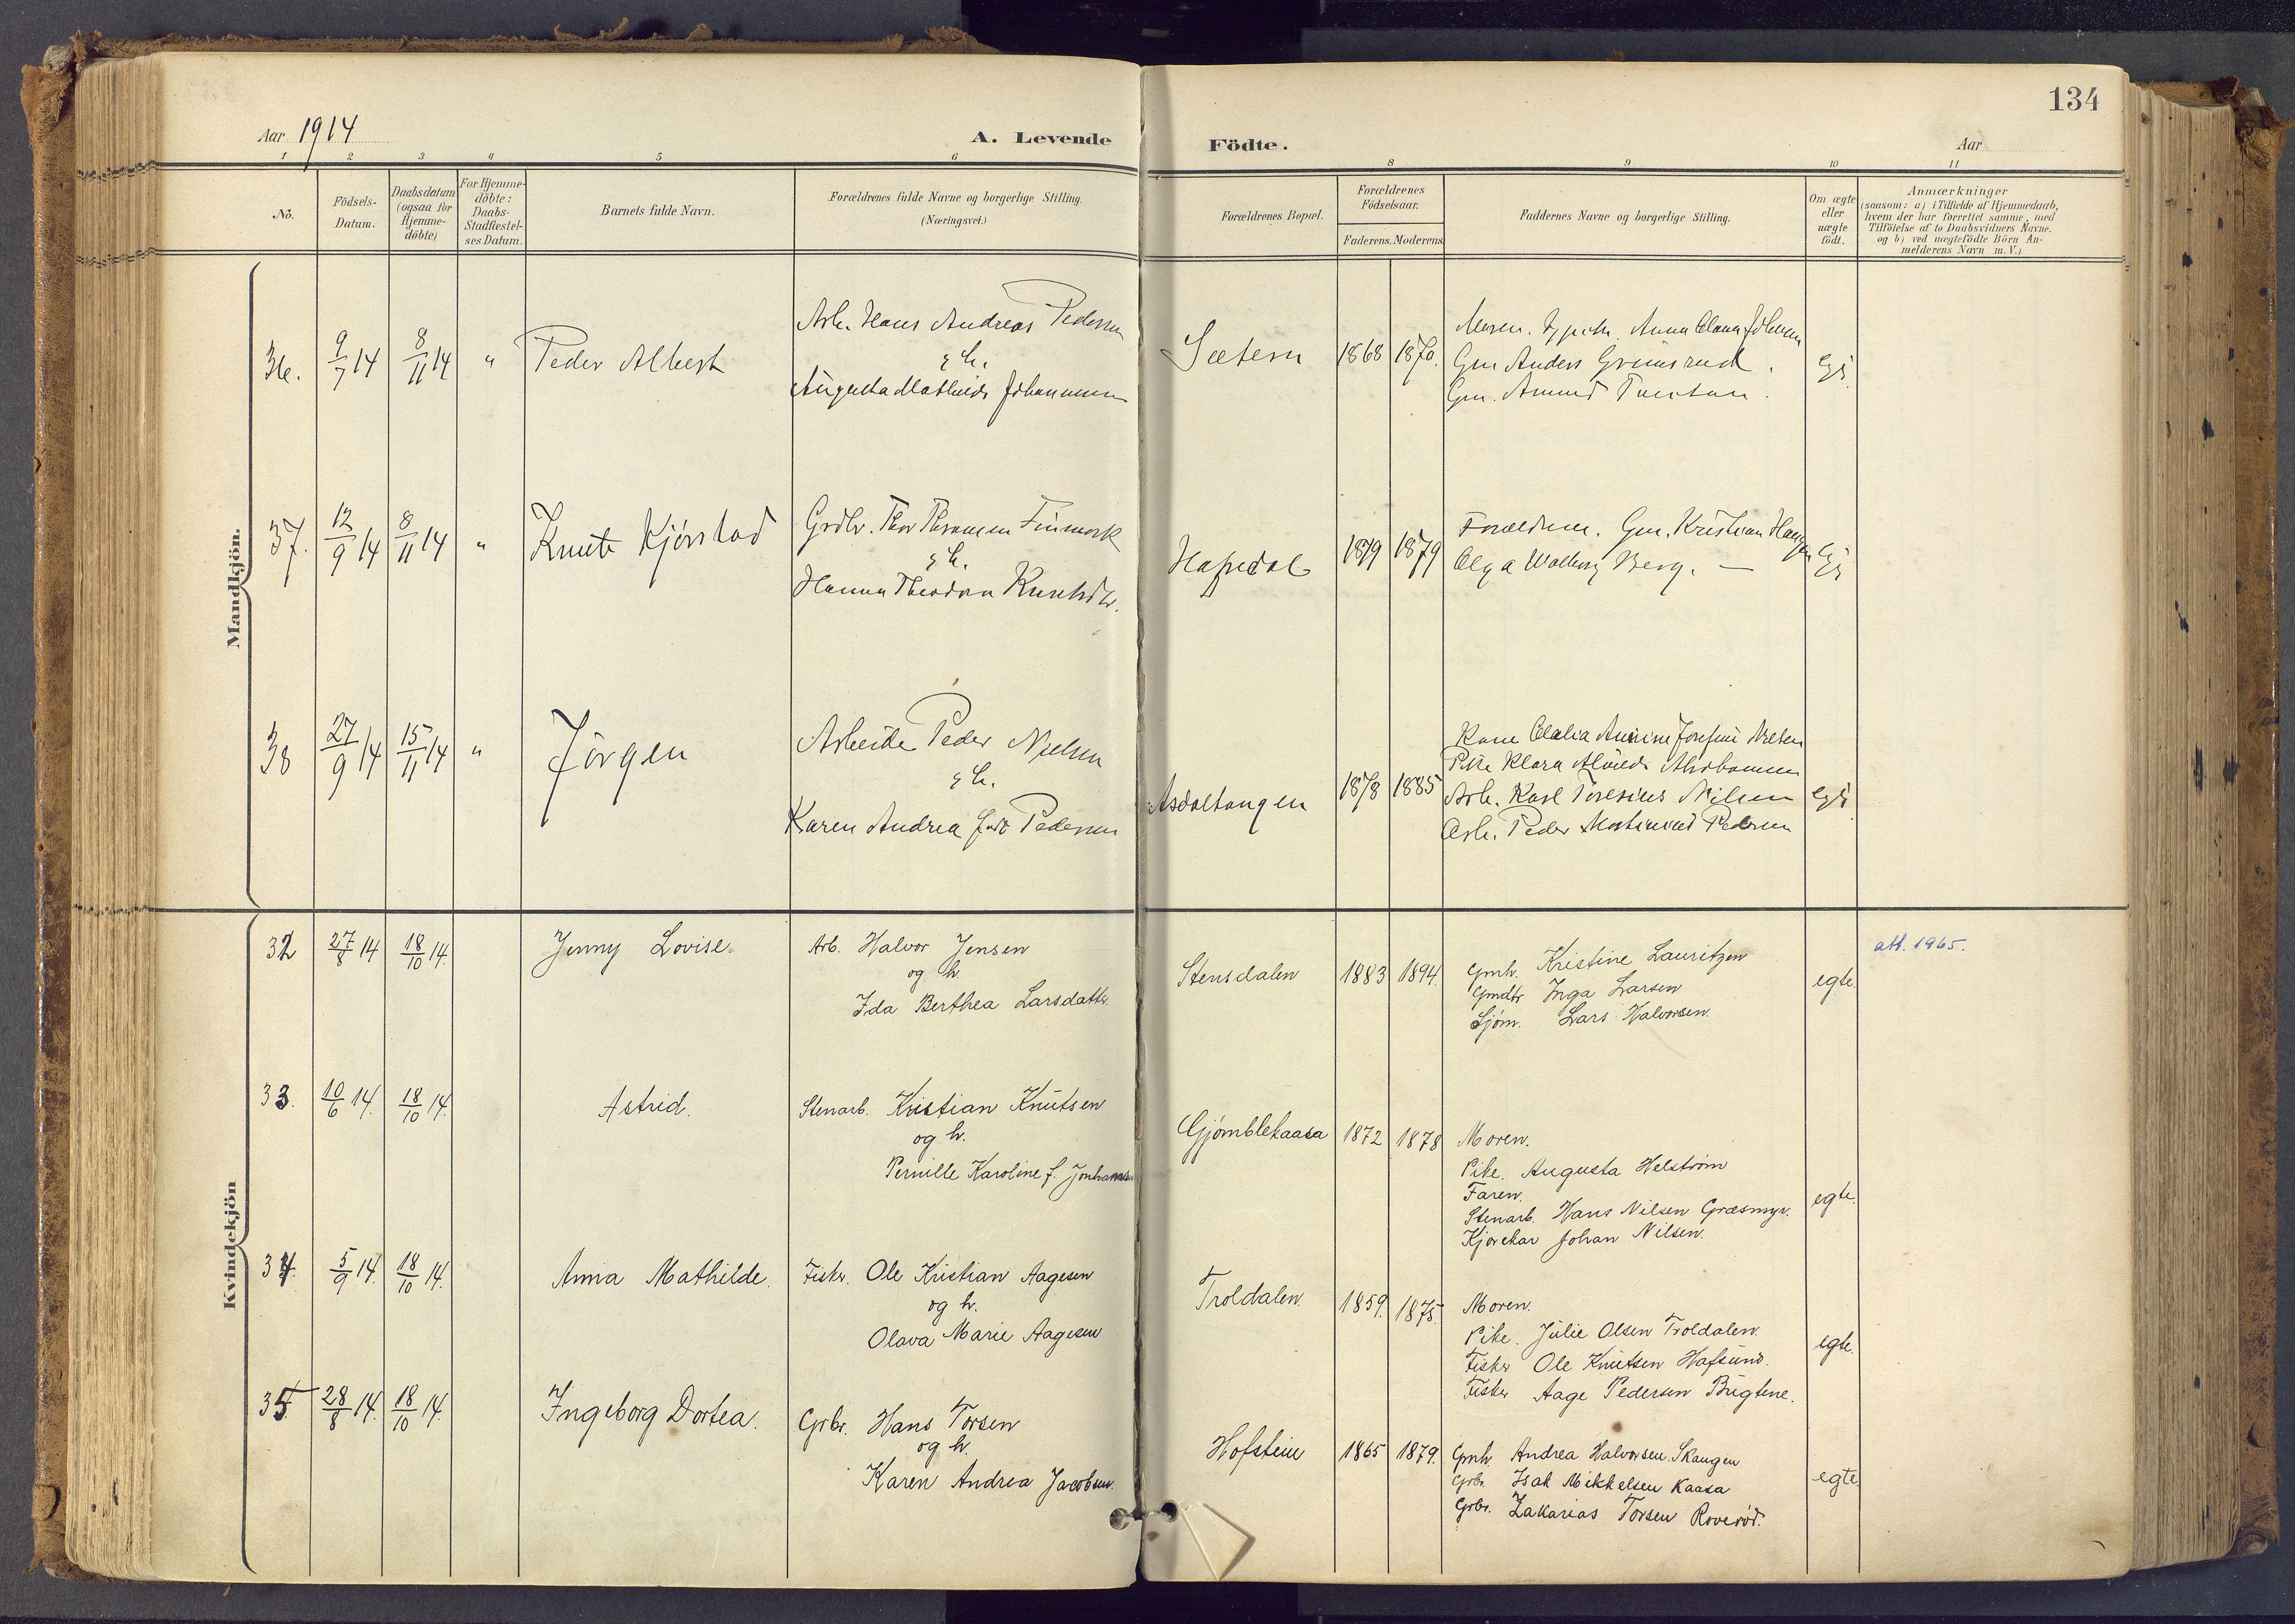 134
Aar 1914
A. Levende
Födte.
Aar
1 2 3 4 5 6 8 9 10 11
No.
Födsels-
Datum.
Daabsdatum
(ogsaa for
Hjemme-
döbte)
For Hjemme-
döbte:
Daabs-
Stadfæstel-
ses Datum.
Barnets fulde Navn.
Forældrenes fulde Navne og borgerlige Stilling.
(Næringsvei.)
Forældrenes Bopæl.
Forældrenes
Födselsaar.
Faderens. Moderens
Faddernes Navne og borgerlige Stilling.
Om ægte
eller
uægte
födt.
Anmærkninger
(saasom: a) i Tilfælde af Hjemmedaab,
hvem der har forrettet samme, med
Tilföielse af to Daabsvidners Navne.
og b) ved uægtefödte Börn An-
melderens Navn m. V.)
Mandkjön.
36. 9/7 14 8/11 14 " Peder Albert
Arb. Hans Andreas Pedersen
& h.
Augusta Mathilde Johannsen
Sætern 1868 1870.
Moren. Anna Johansen
Gm Anders Grimsrud.
Gm. Amund
Egt
37. 12/9 14 8/11 14 " Knut Kjörstad
Grdbr. Thor Thoresen Finmark
& h.
Hanna Theodora Knutsdtr.
1879 1879
Forældrene. Gm. Kristian Haugen
Olga Walborg Berg. —
Egt
38 27/9 14 15/11 14 " Jörgen
Arbeider Peder Nielsen
& h.
Karen Andrea født Pedersen
Asdaltangen 1878 1885
Kone Josefine Nielsen
Pike Klara Alvilde Abrahamsen
Arb. Karl Nilsen
Arb. Peder Martinius Pedersen
Egt
Kvindekjön
32 27/8 14 18/10 14. Jenny Lovise.
Arb. Halvor Jensen
og h.
Ida Berthea Larsdatter
Stensdalen 1883 1894.
Gmh. Kristine Lauritzen
Gmdtr Inga Larsen
Sjøm. Lars Halvorsen.
egte.
att. 1965.
33. 10/6 14. 18/10 14. Astrid.
Stenarb. Kristian Knutsen
og h.
Pernille Karoline f. Jonhansen
Gjømblekaasa 1872 1878
Moren.
Pike. Augusta Helström
Faren.
Stenarb. Hans Nilsen Græsmyr.
Kjørekar Johan Nilsen.
egte.
34. 5/9 14. 18/10 14. Anna Mathilde.
Fisker. Ole Kristian Aagesen
og h.
Olava Marie Aagesen
Troldalen. 1859. 1875.
Moren.
Pike. Julie Olsen Troldalen.
Fisker Ole Knutsen Hafsund.
Fisker Aage Pedersen Brigtene.
egte.
35. 28/8 14. 18/10 14. Ingeborg Dortea.
Grbr. Hans Torsen
og h.
Karen Andrea Jacobsen.
Hofstein 1865 1879.
Gmh Andrea Halvorsen Skaugen
Grbr. Isak Mikkelsen Kaasa
Grbr. Zakarias Torsen Roverød.
egte